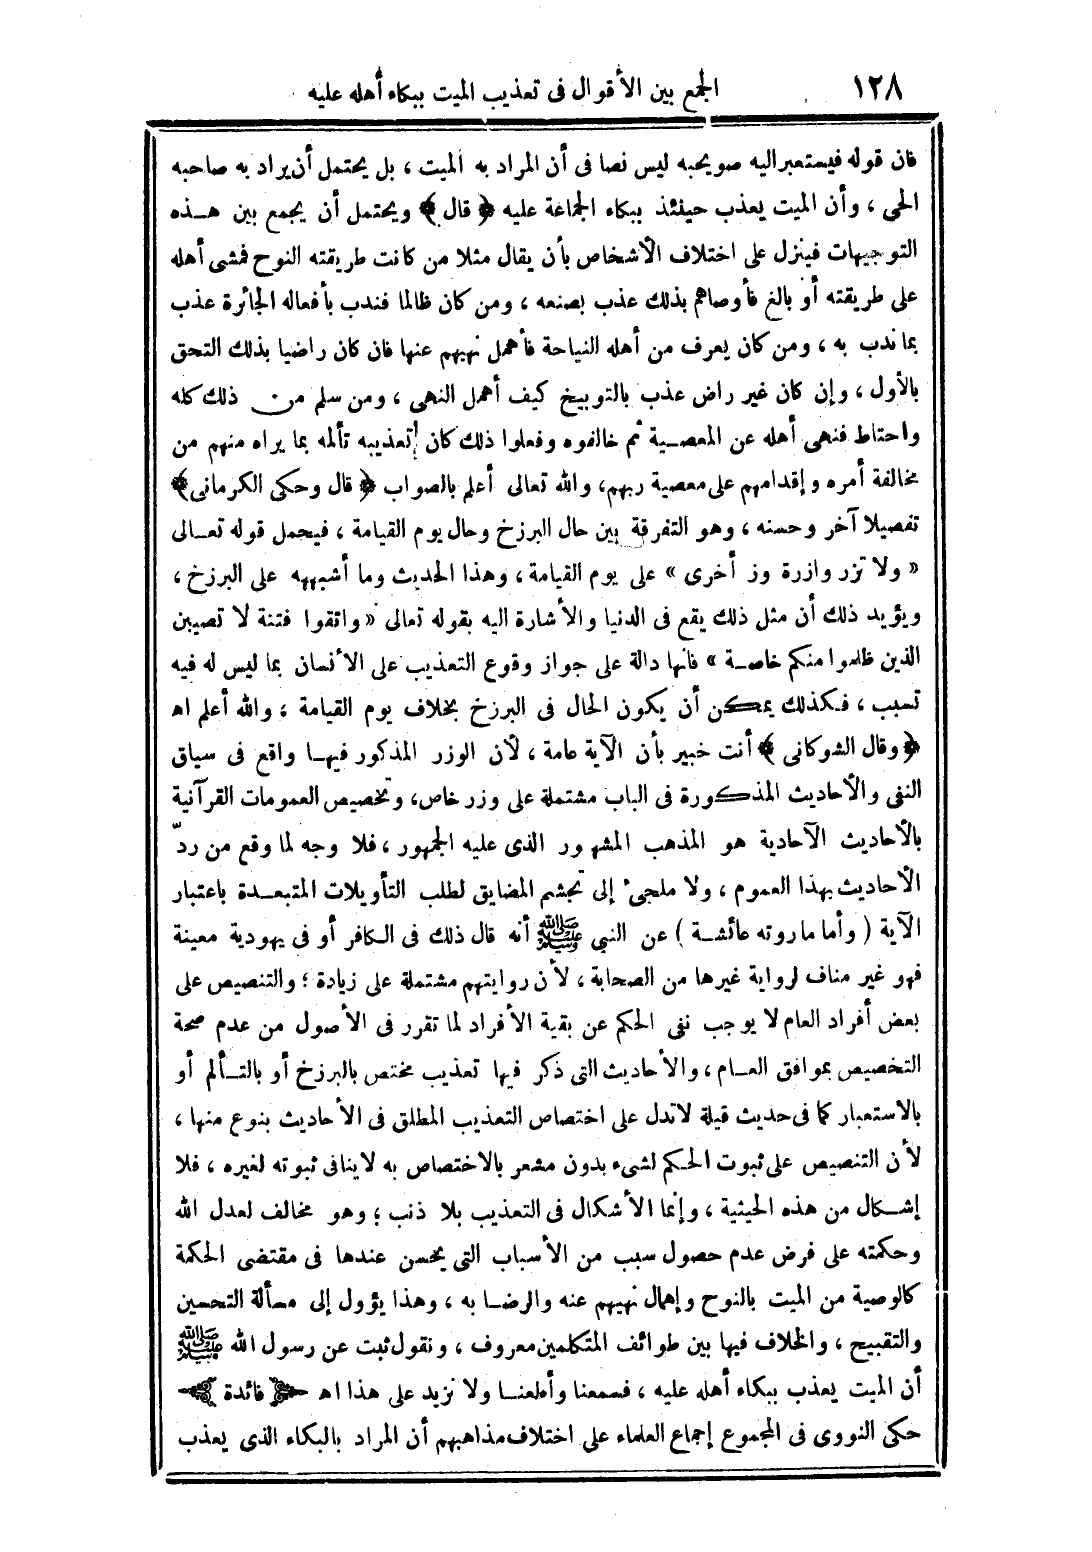 ١٢٨
الجمع بين الأقوال فى تعذيب الميت ببكاء أهله عليه
فان قوله فيستعبر اليه صويحبه ليس نصا فى أن المراد به الميت ، بل يحتمل أن يراد به صاحبه
الحى ، وأن الميت يعذب حينئذ ببكاء الجماعة عليه ﴿ قال ﴾ ويحتمل أن يجمع بين هـذه
التوجيهات فينزل على اختلاف الأشخاص بأن يقال مثلا من كانت طريقته النوح فمشى أهله
على طريقته أو بالغ فأوصاهم بذلك عذب بصنعه ، ومن كان ظالما فندب بأفعاله الجائرة عذب
بما ندب به ، ومن كان يعرف من أهله النياحة فأهمل نهيهم عنها فان كان راضيا بذلك التحق
بالأول ، وإن كان غير راض عذب بالتوبيخ كيف أهمل النهى ، ومن سلم من ذلك كله
واحتاط فنهى أهله عن المعصـية ثم خالفوه وفعلوا ذلك كان تعذيبه تألمه بما يراه منهم من
مخالفة أمره وإقدامهم على معصية ربهم، والله تعالى أعلم بالصواب ﴿ قال وحكى الكرمانى ﴾
تفصيلا آخر وحسنه ، وهو التفرقة بين حال البرزخ وحال يوم القيامة ، فيحمل قوله تعـالى
« ولا تزر وازرة وز أخرى » على يوم القيامة ، وهذا الحديث وما أشبهه على البرزخ ،
ويؤيد ذلك أن مثل ذلك يقع فى الدنيا والأشارة اليه بقوله تعالى « واتقوا فتنة لا تصيبن
الذين ظلموا منكم خاصـة » فانها دالة على جواز وقوع التعذيب على الأنسان بما ليس له فيه
تسبب ، فكذلك يمكن أن يكون الحال فى البرزخ بخلاف يوم القيامة ، والله أعلم اه
﴿ وقال الشوكانى ﴾ أنت خبير بأن الآية عامة ، لأن الوزر المذكور فيهـا واقع فى سياق
النفى والأحاديث المذكورة فى الباب مشتملة على وزر خاص، وتخصيص العمومات القرآنية
بالأحاديث الآحادية هو المذهب المشهور الذى عليه الجمهور ، فلا وجه لما وقع من ردّ
الأحاديث بهذا العموم ، ولا ملجىء إلى تجشم المضايق لطلب التأويلات المتبعـدة باعتبار
الآية ( وأما ما روته عائشـة ) عن النبي ﷺ أنه قال ذلك فى الكافر أو فى يهودية معينة
فهو غير مناف لرواية غيرها من الصحابة ، لأن روايتهم مشتملة على زيادة ؛ والتنصيص على
بعض أفراد العام لا يوجب نفى الحكم عن بقية الأفراد لما تقرر فى الأصول من عدم صحة
التخصيص بموافق العـام ، والأحاديث التى ذكر فيها تعذيب مختص بالبرزخ أو بالتـألم أو
بالاستعبار كما فى حديث قيلة لا تدل على اختصاص التعذيب المطلق فى الأحاديث بنوع منها ،
لأن التنصيص على ثبوت الحكم لشىء بدون مشعر بالاختصاص به لا ينافى ثبوته لغيره ، فلا
إشـكال من هذه الحيثية ، وإنما الأشكال فى التعذيب بلا ذنب ؛ وهو مخالف لعدل الله
وحكمته على فرض عدم حصول سبب من الأسباب التى يحسن عندها فى مقتضى الحكمة
كالوصية من الميت بالنوح وإهمال نهيهم عنه والرضـا به ، وهذا يؤول إلى مسألة التحسين
والتقبيح ، والخلاف فيها بين طوائف المتكلمين معروف ، ونقول ثبت عن رسول الله ﷺ
أن الميت يعذب ببكاء أهله عليه ، فسمعنا وأطعنـا ولا نزيد على هذا اه ﴿ فائدة ﴾
حكى النووى فى المجموع إجماع العلماء على اختلاف مذاهبهم أن المراد بالبكاء الذى يعذب